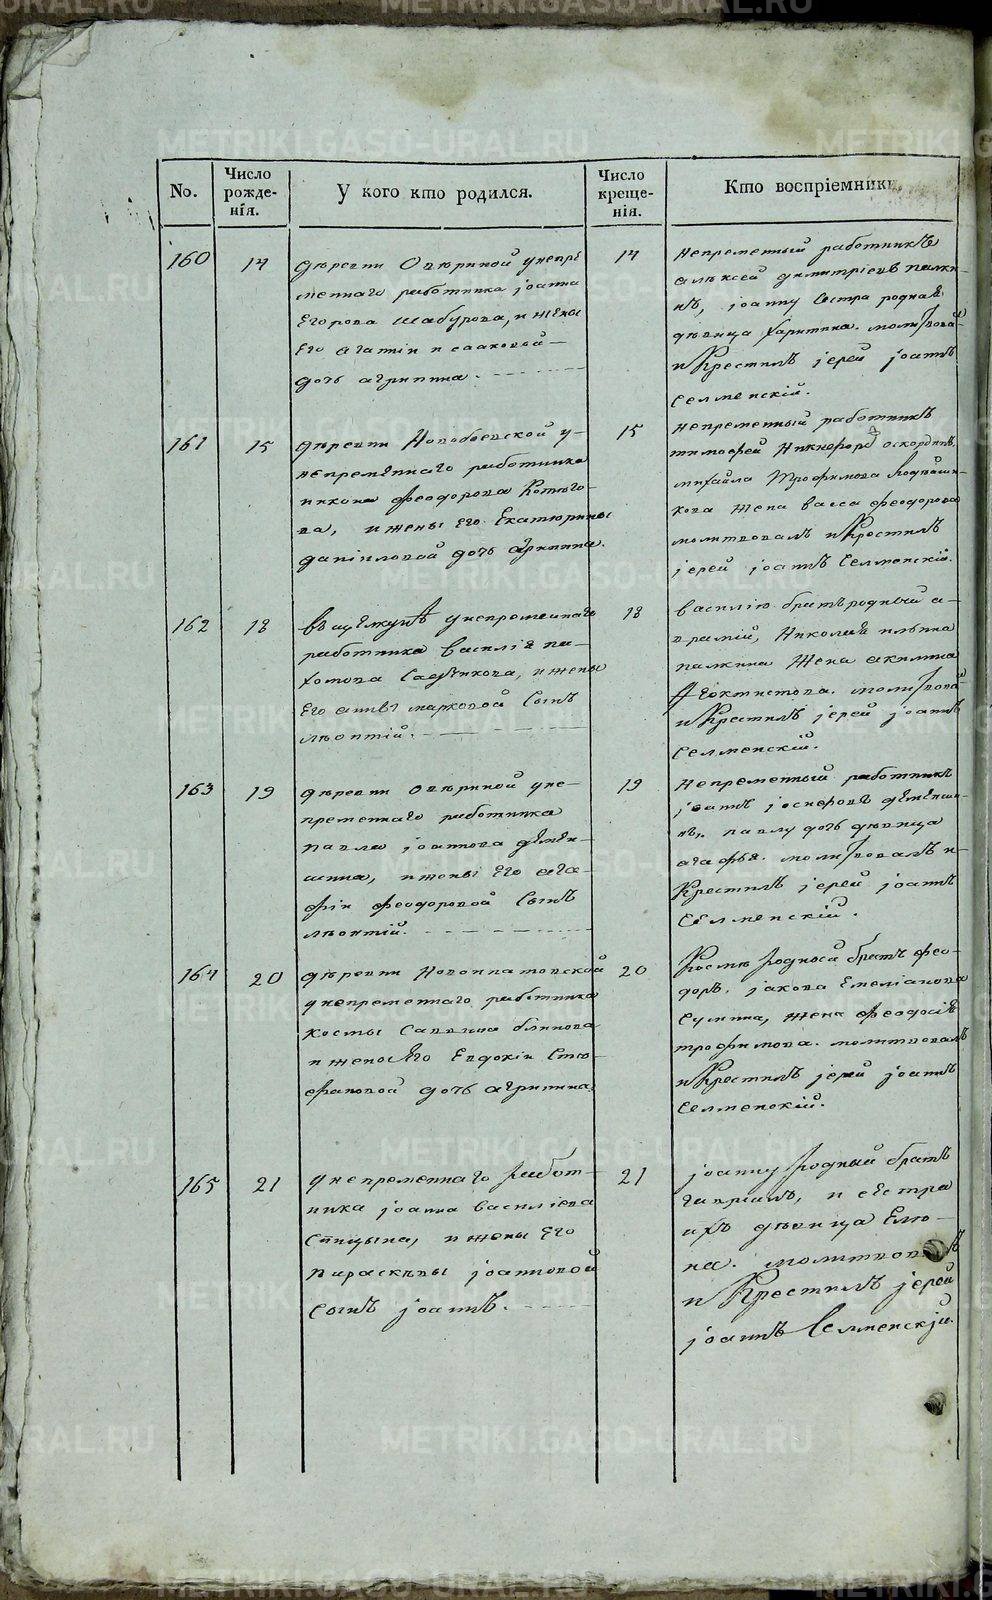 No.
Число рожденія.
У кого кто родился.
Число крещенія.
Кто воспріемники.
160
14
деревни Озѣриной у непре
меннаго работника іоанна
Егорова Шабурова, и жены
Его агатіи исааковой
дочь агрипина.
14
Непременный работникъ
алѣксей димитріевъ палки
нъ, іоанну Сестра родная
дѣвица Харитина. молитвова
и Крестилъ іерей іоаннъ
Селменскій.
161
15
деревни Новобоевской у
непременнаго работника
никона феодорова
ва, и жены Его Екатерины
даніиловой дочь агрипина.
15
непременный работникъ
тимофей Никифоровъ
михаила Трофимова
кова жена васса феодорова
молитвовалъ и Крестилъ
іерей іоаннъ Селменскій.
162
18
въ щелкунѣ у непременнаго
работника василія па
хомова Садчикова, и жены
Его анны марковой Сынъ
лѣонтій.
18
василію братъ родный а
врамій, Николая ильина
палкина Жена акилина
Феоктистова. молитвова
и Крестилъ іерей іоаннъ
Селменскій.
163
19
деревни Озѣриной у не
пременнаго работника
павла іоаннова демен
шина, и жены Его ага
фіи феодоровой Сынъ
лѣонтій.
19
Непременный работникъ
іоаннъ іосифовъ деменши
нъ. павлу дочь дѣвица
агафья. молитвовалъ и
Крестилъ іерей іоаннъ
Селменскій.
164
20
деревни Новоипатовской
у непременнаго работника
Космы Саввина блинова
и жены Его Евдокіи Сте
фановой дочь агрипина.
20
Космѣ Родной братъ фео
доръ. іакова Емеліанова
Сулина, жена феодосія
трофимова. молитвовалъ
и Крестилъ іерей іоаннъ
Селменскій.
165
21
у непременнаго работ
ника іоанна василіева
Спицына, и жены Его
параскѣвы іоанновой
Сынъ іоаннъ.
21
іоанну Родный братъ
гавріилъ, и сестра
ихъ дѣвица Еле
на. молитвовалъ
и Крестилъ іерей
іоаннъ Селменскій.
METRIKI.GASO-URAL.RU